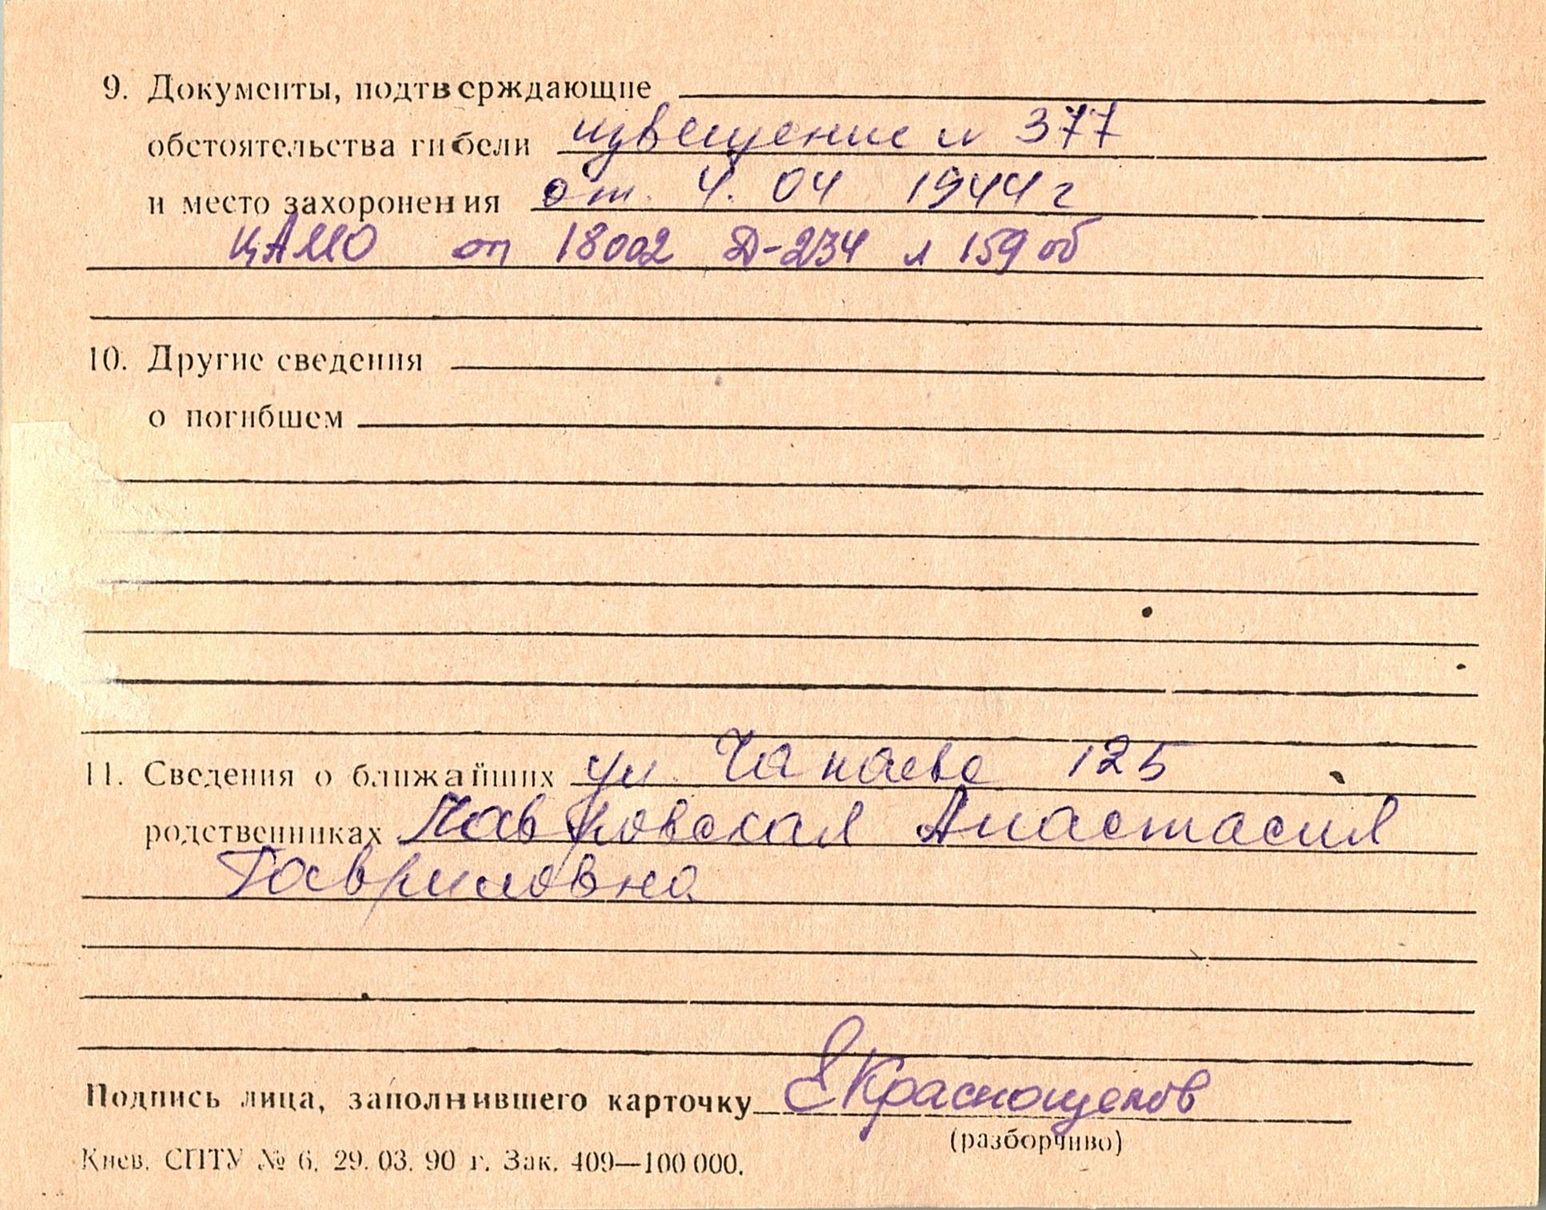 9. Документы, подтверждающие
обстоятельства гибели извещение № 377
и место захоронения от 4. 04 1944 г
ЦАМО оп 18002 Д-234 л 159 об
10. Другие сведения
о погибшем
11. Сведения о ближайших ул. Чапаева 125
родственниках Анастасия
Гавриловна
Подпись лица, заполнившего карточку ЕКраснощеков
(разборчиво)
Киев. СПТУ № 6. 29. 03. 90 г. Зак. 409—100 000.